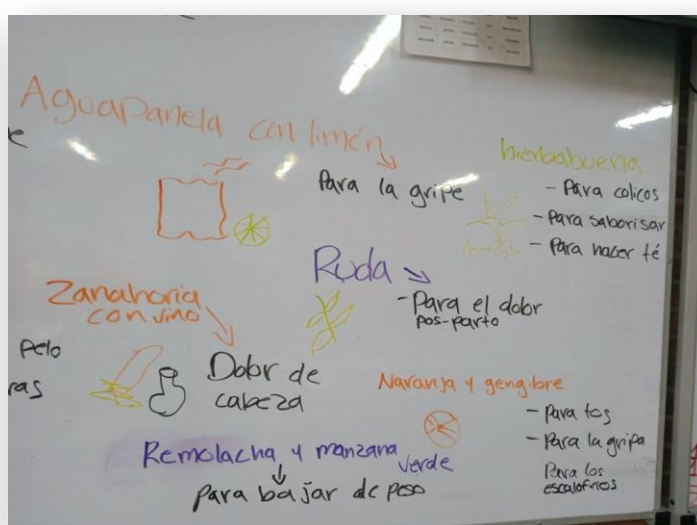 Aguapanela con limón
Para la gripe
hierbabuena
- Para colicos
- Para saborisar
- Para hacer té
Ruda
- Para el dolor
pos-parto
Zanahoria
con vino
Dolor de
cabeza
pelo
ras
Naranja y gengibre
- Para tos
- Para la gripa
Para los
escalofrios
Remolacha y manzana
verde
para bajar de peso